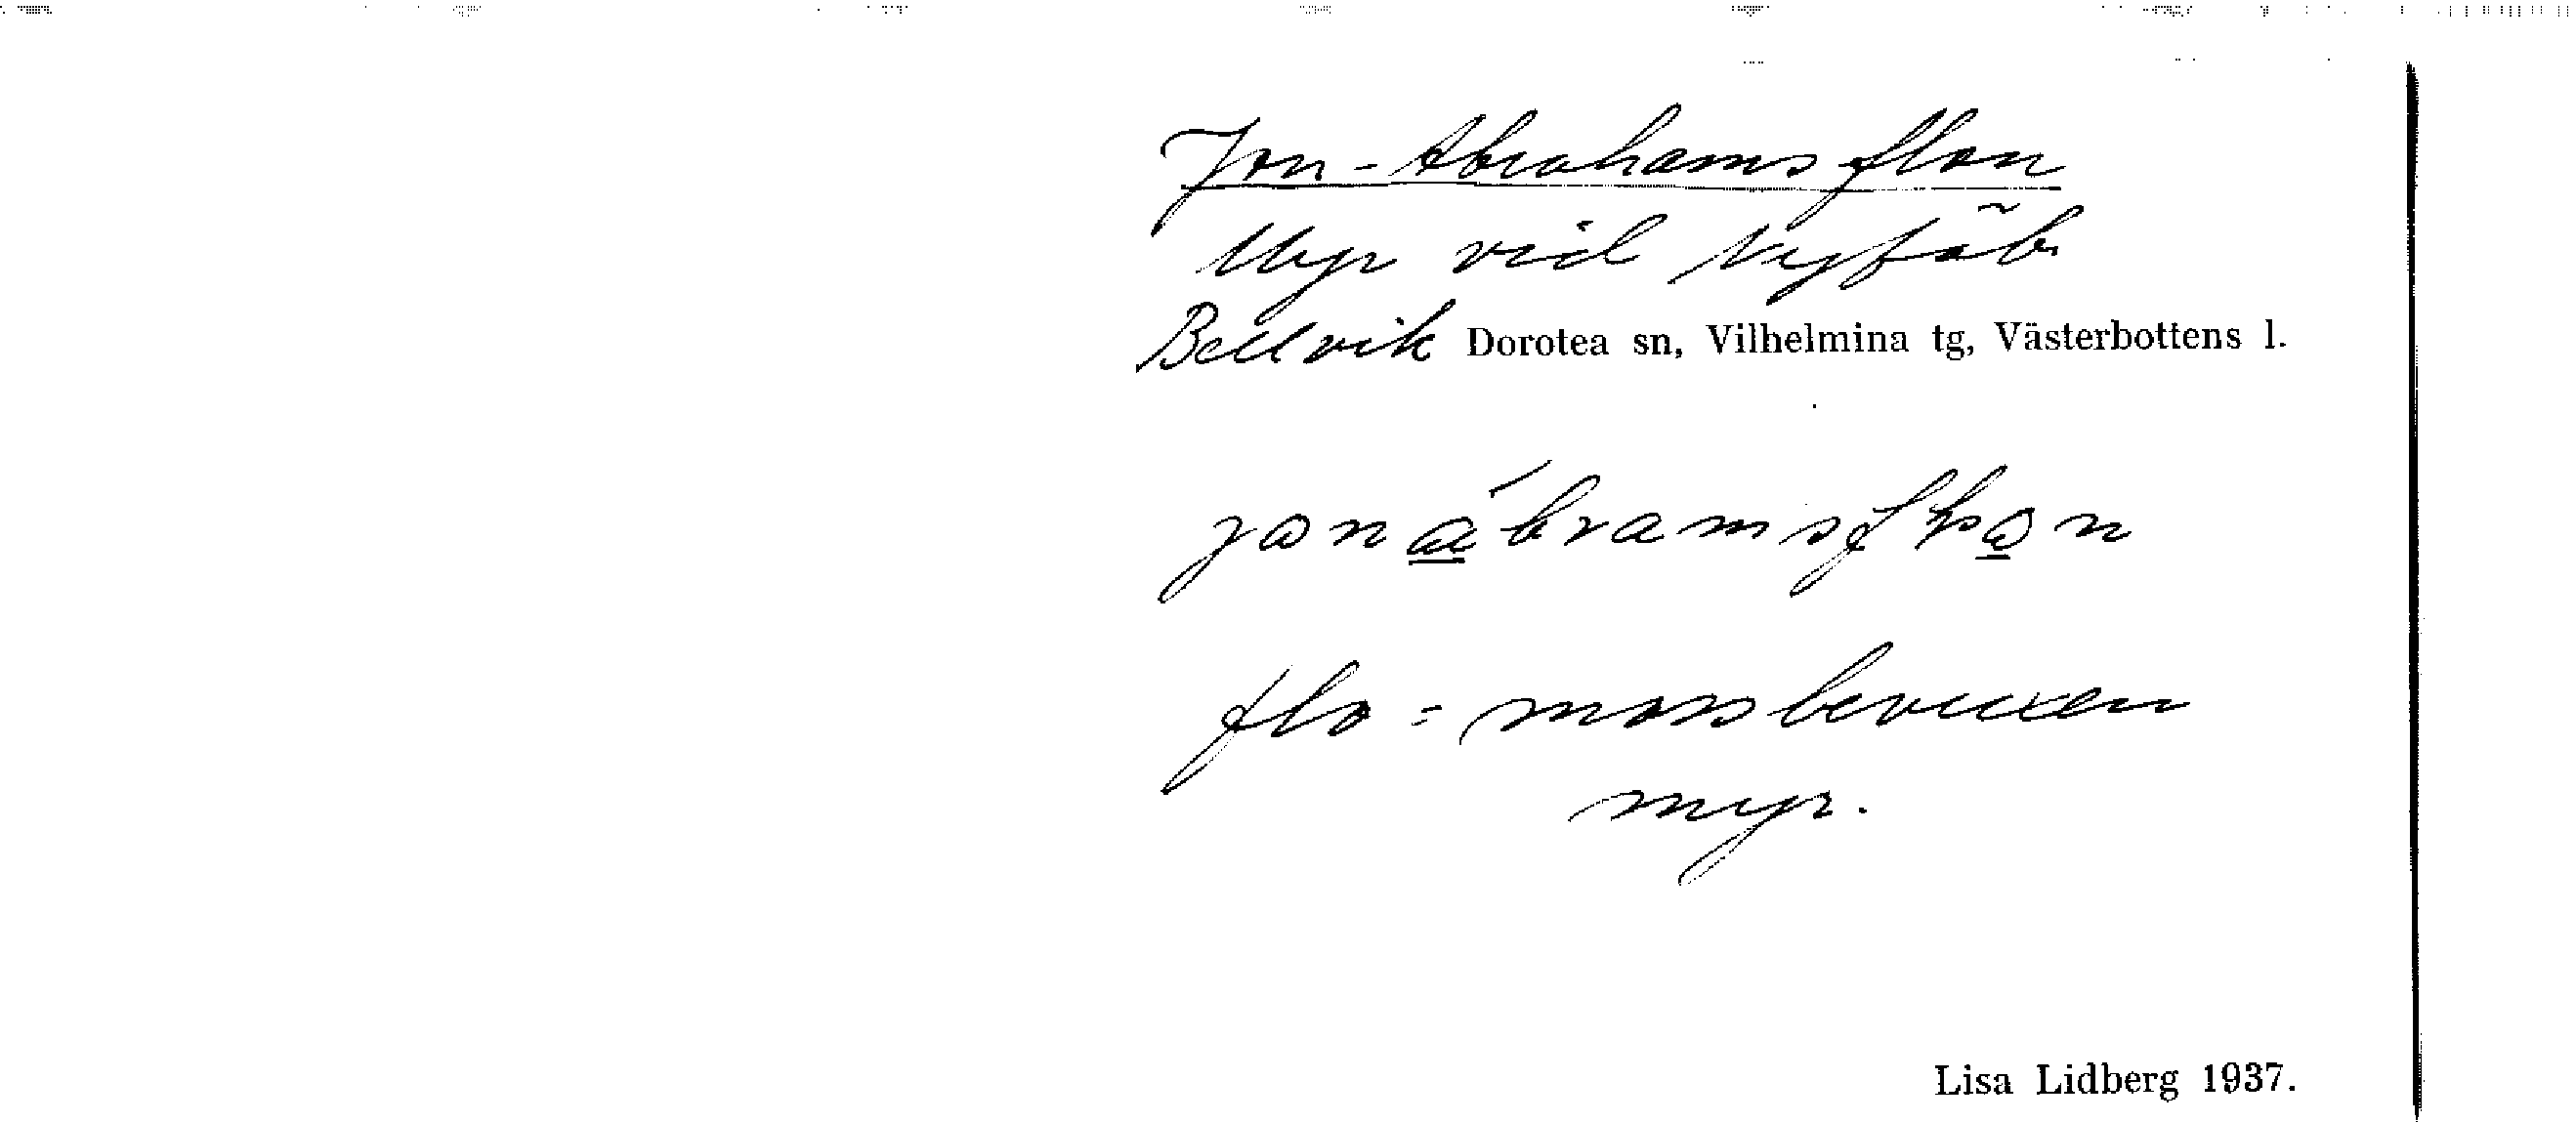 Jon-Abrahamsflon
Myr vid Nyfäb.
Bellvik Dorotea sn, Vilhelmina tg, Västerbottens l.
flo = mossbevuxen
myr.
Lisa Lidberg 1937.